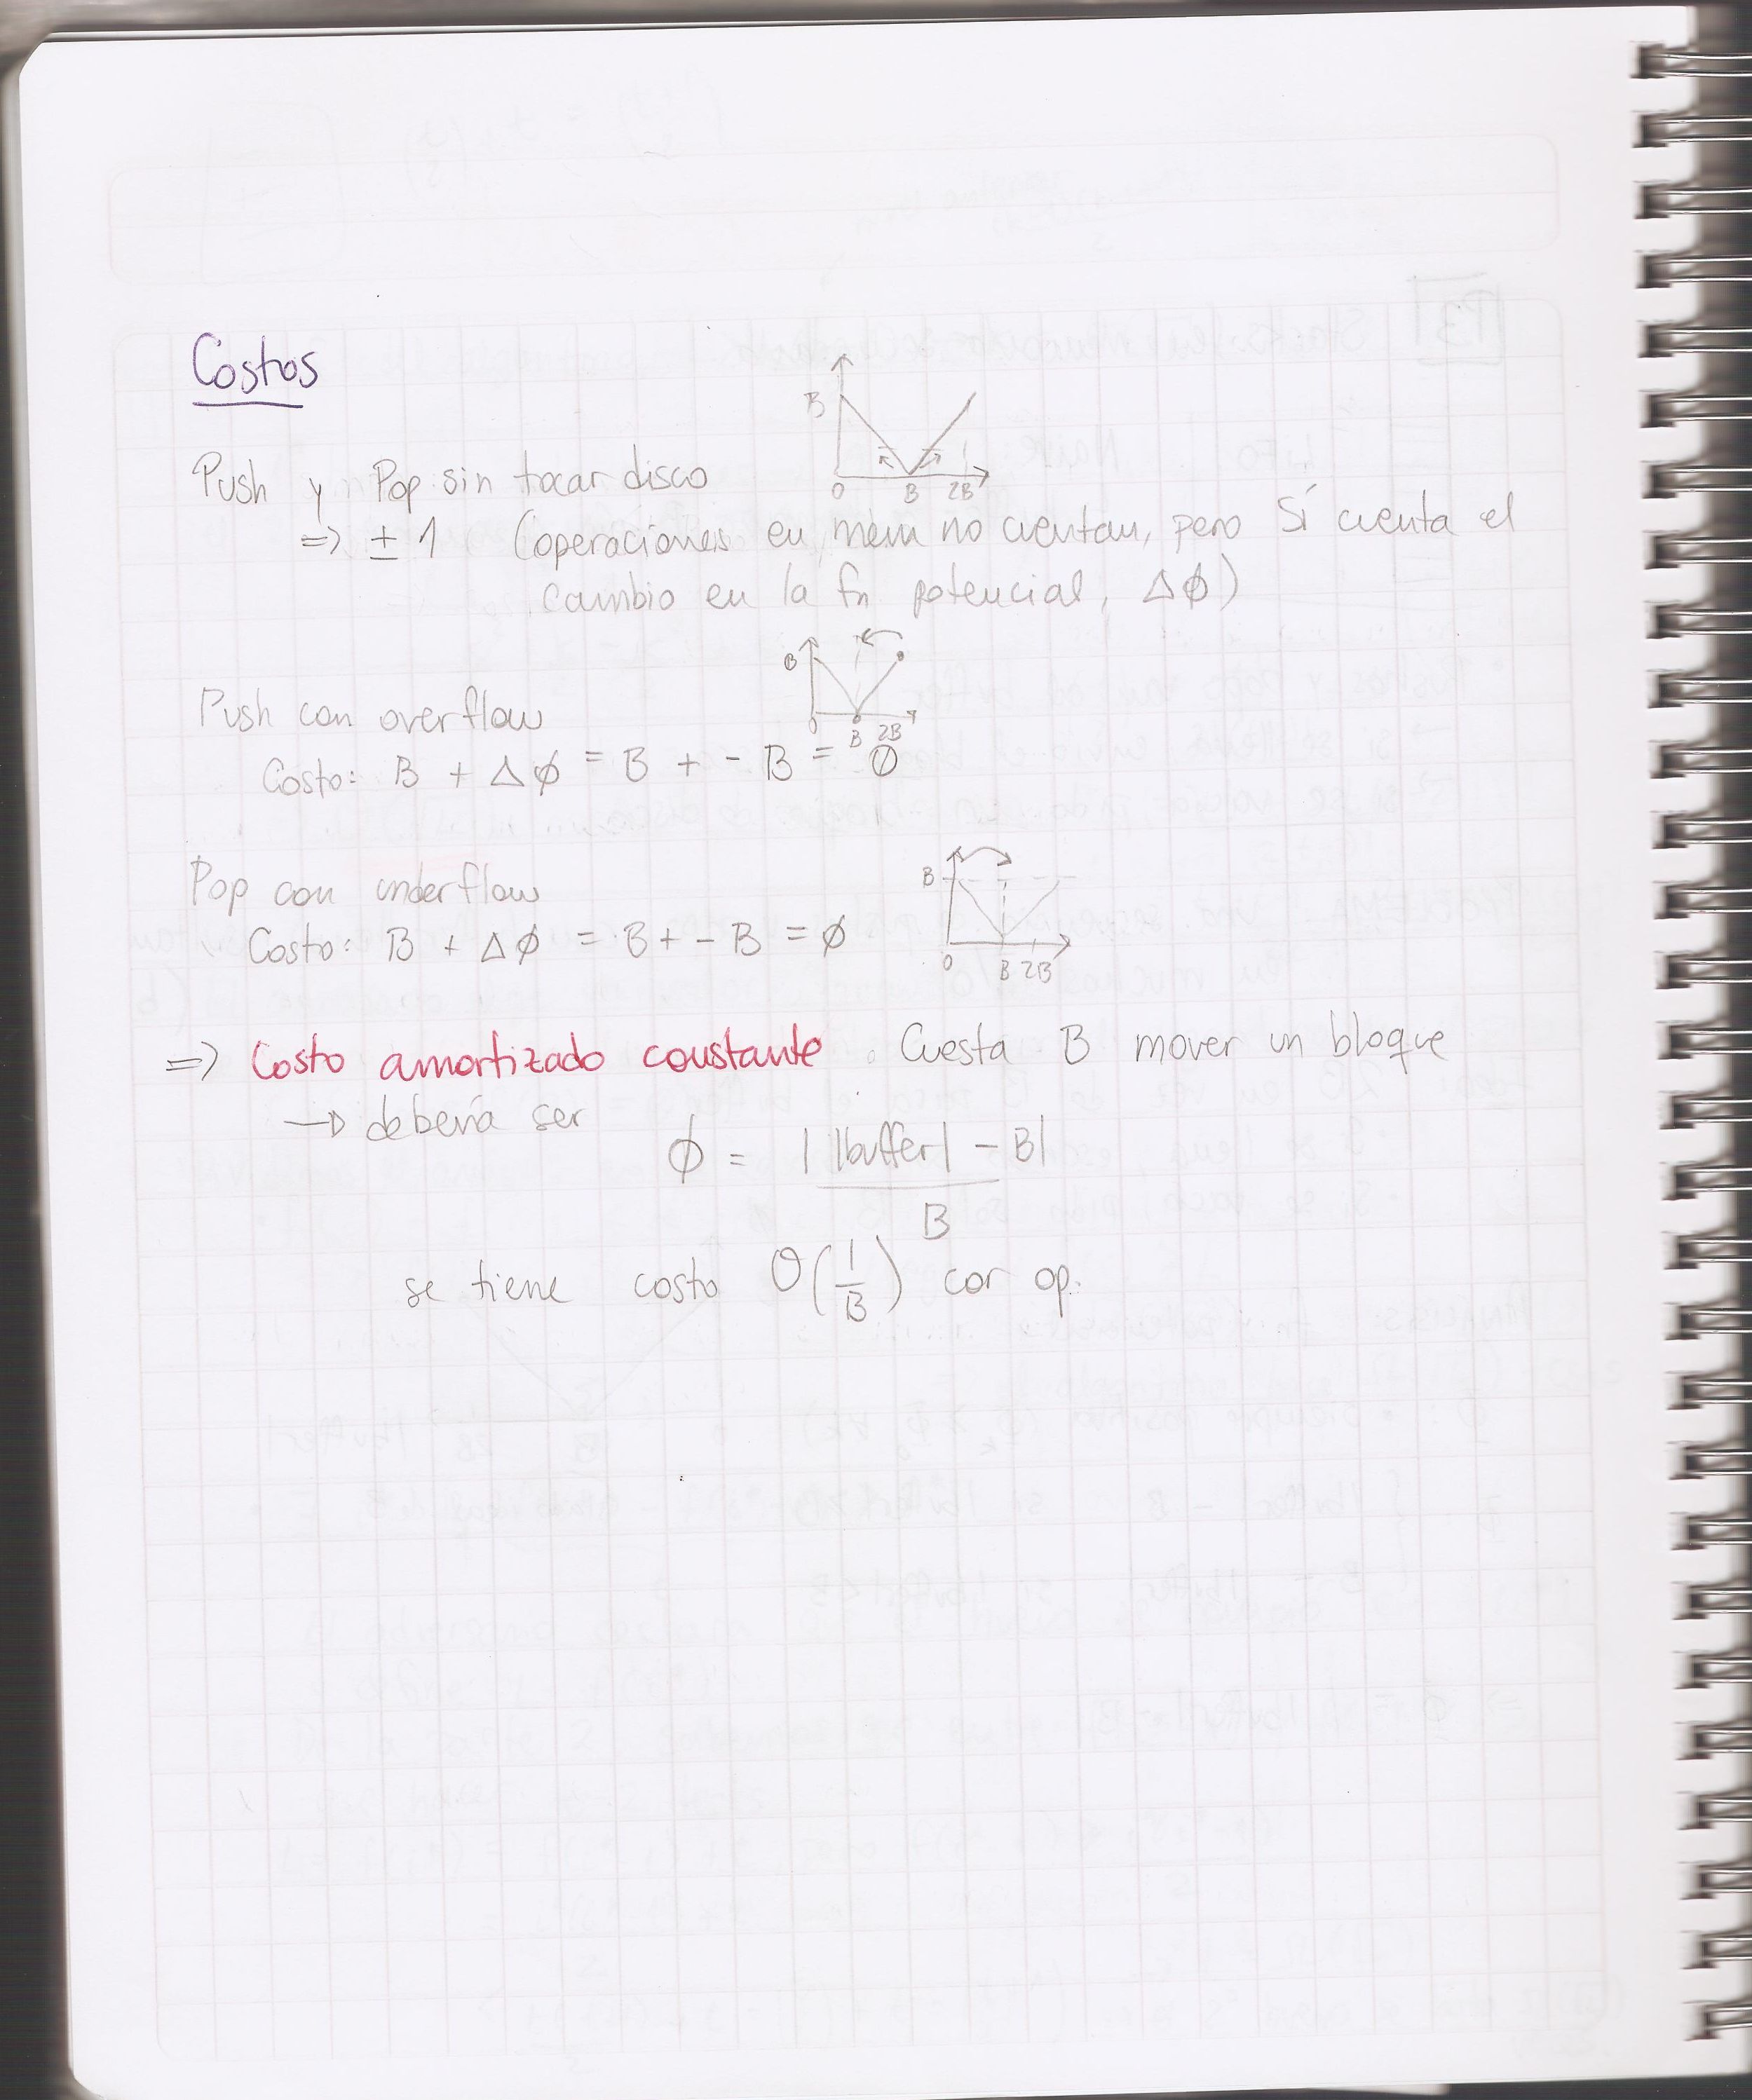 Costos
B
0 B 2B
Push y Pop sin tocar disco
=> ± 1 (operaciones en mem no cuentan, pero SÍ cuenta el
cambio en la fn potencial, Δϕ)
B
0 B 2B
Push con overflow
Costo: B + Δϕ = B + - B = 0
B
0 B 2B
Pop con underflow
Costo: B + Δϕ = B + - B = ϕ
=> Costo amortizado constante. Cuesta B mover un bloque
→ debería ser
ϕ = | |buffer| - B|
B
se tiene costo O(1/B) cor op.